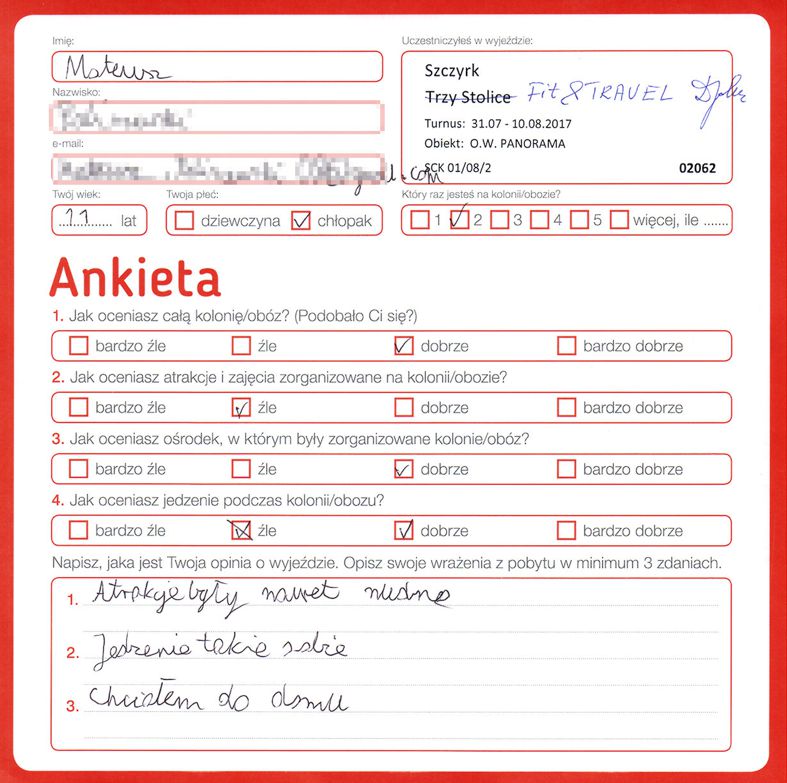 Imię:
Mateusz
Nazwisko:
e-mail:
.com
Twój wiek:
11 lat
Twoja płeć:
dziewczyna chłopak
Uczestniczyłeś w wyjeździe:
Szczyrk
Trzy Stolice Fit & TRAVEL
Turnus: 31.07 - 10.08.2017
Obiekt: O.W. PANORAMA
SCK 01/08/2 02062
Który raz jesteś na kolonii/obozie?
1 2 3 4 5 więcej, ile .......
Ankieta
1. Jak oceniasz całą kolonię/obóz? (Podobało Ci się?)
bardzo źle źle dobrze bardzo dobrze
2. Jak oceniasz atrakcje i zajęcia zorganizowane na kolonii/obozie?
bardzo źle źle dobrze bardzo dobrze
3. Jak oceniasz ośrodek, w którym były zorganizowane kolonie/obóz?
bardzo źle źle dobrze bardzo dobrze
4. Jak oceniasz jedzenie podczas kolonii/obozu?
bardzo źle źle dobrze bardzo dobrze
Napisz, jaka jest Twoja opinia o wyjeździe. Opisz swoje wrażenia z pobytu w minimum 3 zdaniach.
1. Atrakcje były nawet nudne
2. Jedzenie takie sobie
3. Chciałem do domu